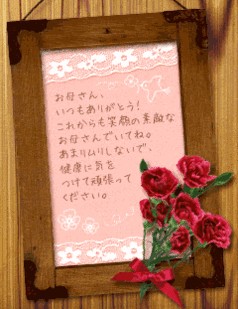 お母さん、
いつもありがとう!
これからも笑顔の素敵な
お母さんでいてね。
あまりムリしないで、
健康に気を
つけて頑張って
ください。